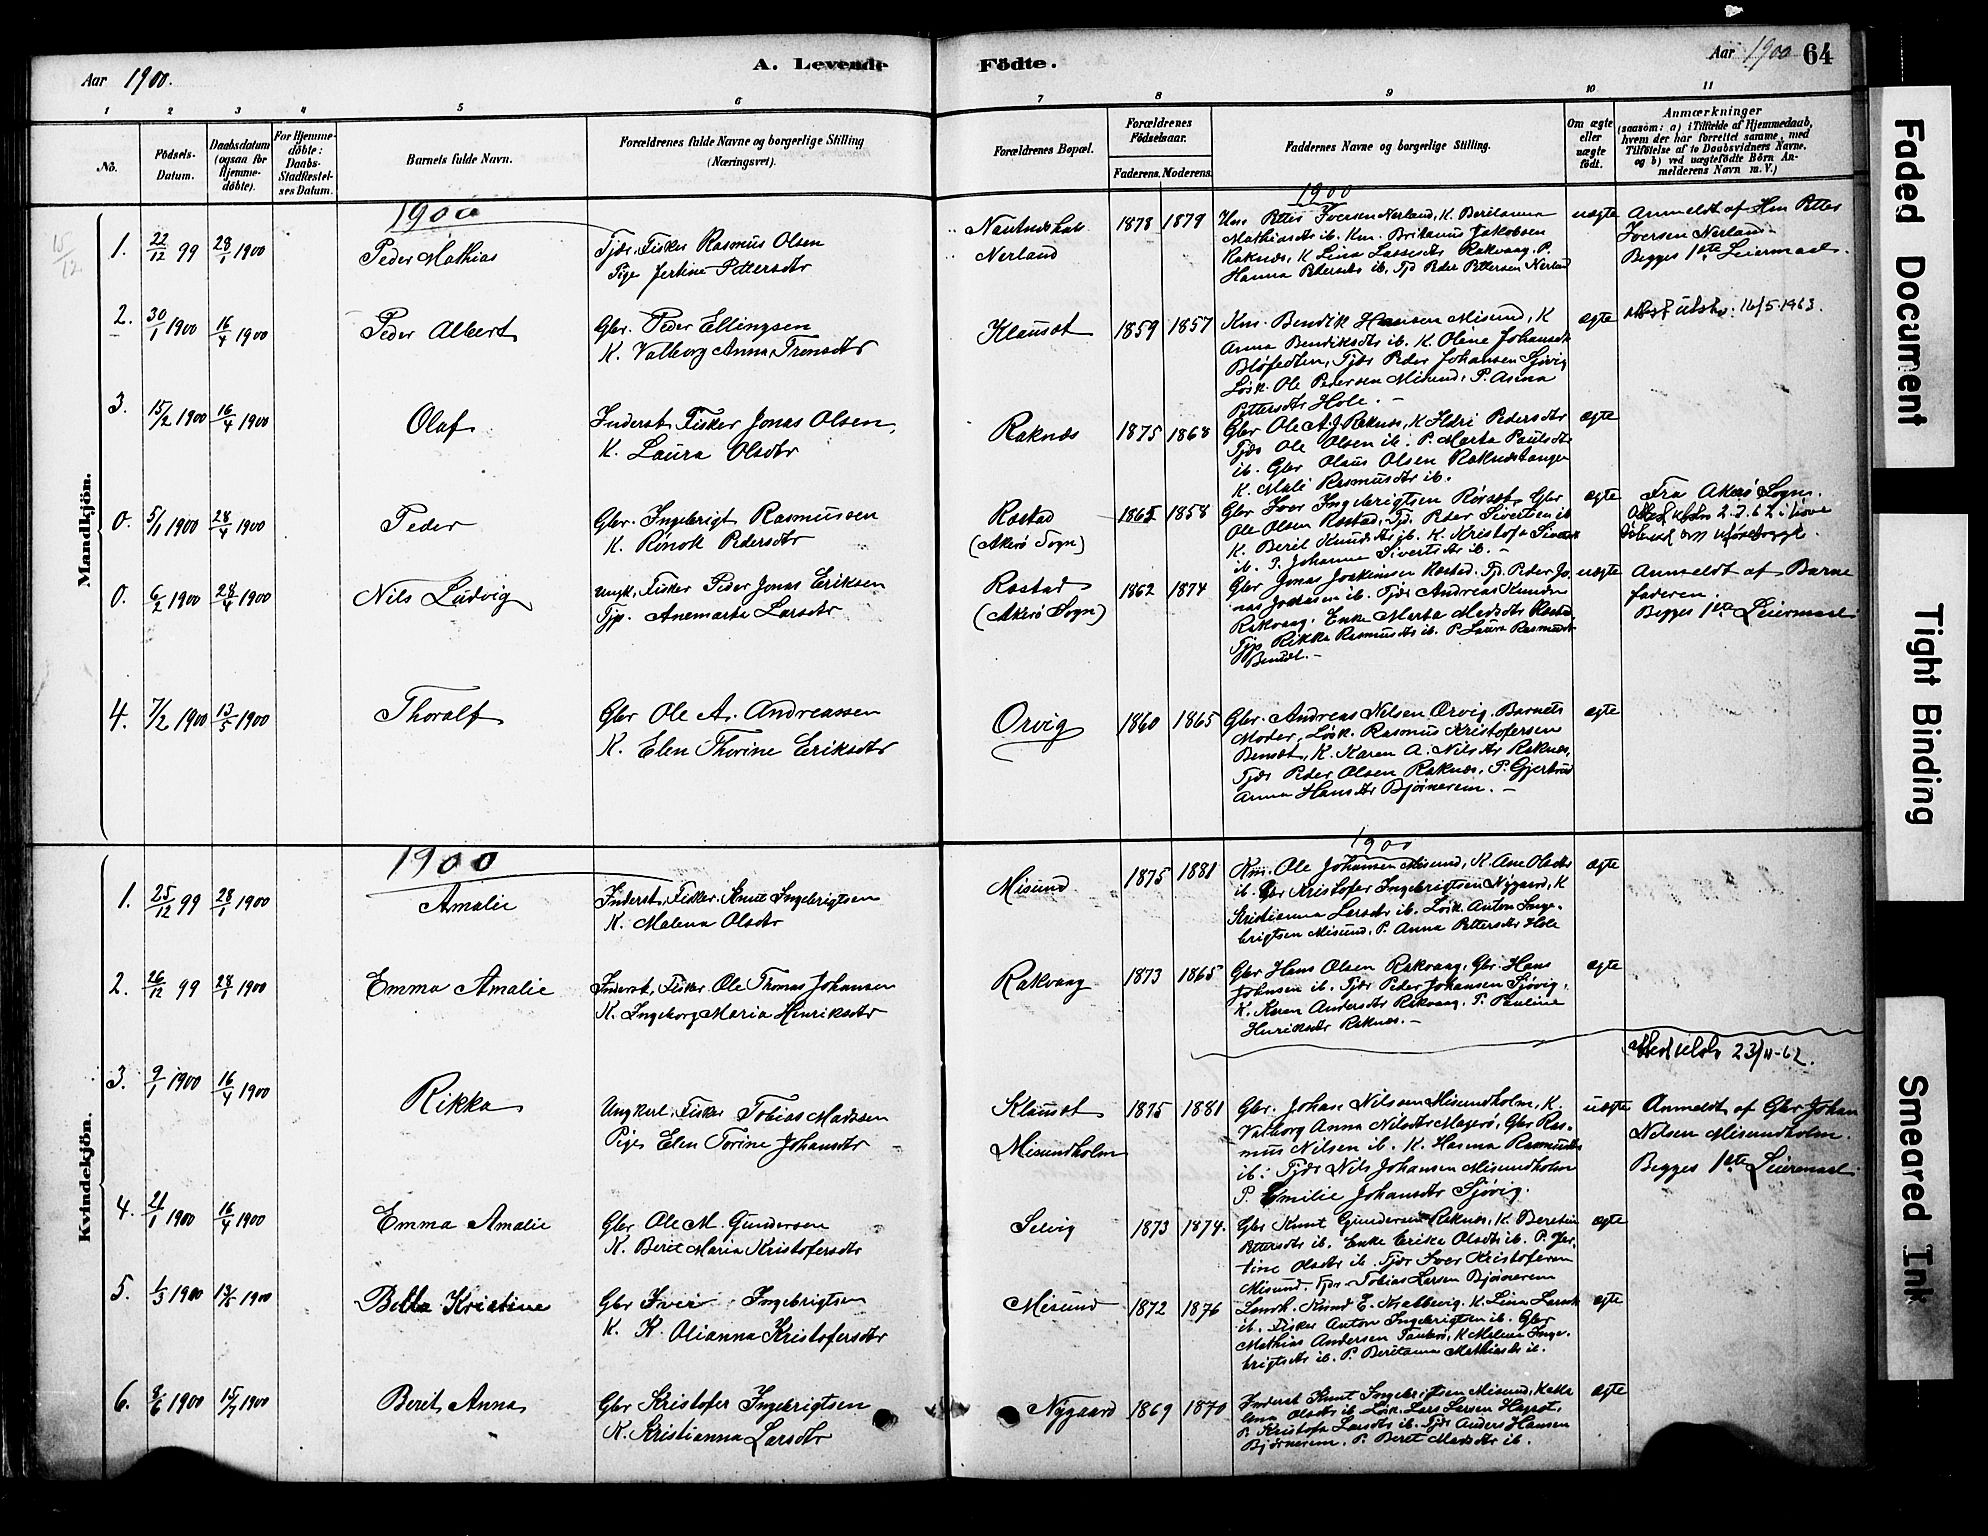 Aar 1900.
A. Levende
Födte.
Aar 1900
64
1 2 3 4 5 6 7 8 9 10 11
No.
Födsels-
Datum.
Daabsdatum
(ogsaa for
Hjemme-
döbte).
For Hjemme-
döbte:
Daabs-
Stadfestel-
ses Datum.
Barnets fulde Navn.
Forældrenes fulde Navne og borgerlige Stilling
(Næringsvei).
Forældrenes Bopæl.
Forældrenes
Födselsaar.
Faderens. Moderens.
Faddernes Navne og borgerlige Stilling.
Om ægte
eller
uægte
födt.
Anmærkninger
(saasom: a) i Tilfælde af Hjemmedaab,
hvem der har forrettet samme, med
Tilföielse af to Daabsvidners Navne.
og b) ved uægtefödte Börn An-
melderens Navn m. V.)
Mandkjön.
15/12
1900
1900
1. 22/12 99 28/1 1900
Peder Mathias
Tjdr. Fisker Rasmus Olsen
Pige Jertine Pettersdtr
Nerland
1878 1879
Km. Petter Iversen Nerland, K. Beritanna
Mathiasdtr ib. Km. Britanus Jakobsen
Raknæs, K Lina Lassesdtr Rakvaag. P.
Hanna Petersdtr ib. Tjd Peder Pettersen Nerland
uægte
Anmeldt af Km Petter
Iversen Nerland
Begges 1ste Leiermaal.
2. 30/1 1900 16/4 1900
Peder Albert
Gbr. Peder Ellingsen
K. Valborg Anna Tronsdtr
Klauset
1859 1857
Km. Bendik Hansen Misund, K
Anna Bendiksdtr ib. K. Olene Johansdtr
Tjdr Peder Johansen Sjøvig
Løsk. Ole Pedersen Misund, P. Anna
Pettersdtr Hole. -
ægte
utst. 16/5-1963.
3. 15/2 1900 16/4 1900
Olaf
Inderst, Fisker Jonas Olsen,
K. Laura Olsdtr
Raknæs
1875 1868
Gbr Ole A.J. Raknæs, K Ildri Pedersdtr
Tjdr Ole Olsen ib. P. Marta Paulsdtr
ib. Gbr Olaus Olsen Raknæstangen
K. Mali Rasmusdtr ib.
ægte
0. 5/1 1900 28/4 1900
Peder
Gbr. Ingebrigt Rasmussen
K. Rønok Pedersdtr
Rostad
(Akerø Sogn)
1865 1858
Gbr Iver Ingebrigtsen Rørset, Gbr
Ole Olsen Rostad, Tjd. Peder Sivertsen ib
K. Berit Knudsdtr ib. K. Kristofa
ib. P. Johanna Sivertsdtr ib. -
ægte
Fra Akerø Sogn.
0. 6/2 1900 28/4 1900
Nils Ludvig
Ungk. Fisker Peder Jonas Eriksen
Tjp. Anemarta Larsdtr
Rostad
(Akerø Sogn)
1862 1874
Gbr Jonas Joakimsen Rostad. Tjd. Peder Jo-
nas ib. Tjdr Andreas Knudsen
Rakvaag. Enke Marta Madsdtr Rostad
Tjp Rikka Rasmusdtr ib. P. Laura Rasmusdtr
uægte
Anmeldt af Barne
faderen.
Begges 1ste Leiermaal
4. 7/2 1900 13/5 1900
Thoralf
Gbr Ole A. Andreassen
K. Elen Thorine Eriksdtr
Orvig
1860 1865
Gbr. Andreas Nilsen Orvig. Barnets
Moder, Løsk. Rasmus Kristofersen
K. Karen A. Nilsdtr Raknæs,
Tjdr Peder Olsen Raknæs, P. Gjertrud
Anna Hansdtr Bjørnerem. -
ægte
Kvindekjön.
1900
1900
1. 25/12 99 28/1 1900
Amalie
Inderst, Fisker Knut Ingebrigtsen
K. Malena Olsdtr
Misund
1875 1881
Km. Ole Johansen Misund, K. Ane Olsdtr
ib. Gbr Kristofer Ingebrigtsen Nygaard, K
Kristianna Larsdtr ib. Løsk. Anton Inge-
brigtsen Misund, P. Anna Pettersdtr Hole
ægte
2. 26/12 99 28/1 1900
Emma Amalie
Inderst, Fisker Ole Thomas Johansen
K. Ingeborg Maria Henriksdtr
Rakvaag
1873 1865
Gbr Hans Olsen Rakvaag, Gbr. Hans
Johnsen ib. Tjdr Peder Johansen Sjøvig.
K. Karen Andersdtr Rakvaag. P. Pauline
Henriksdtr Raknæs. -
ægte
23/11-62.
3. 9/1 1900 16/4 1900
Rikka
Ungkarl, Fisker Tobias Madssen
Pige Elen Torine Johansdtr
Klauset
Misundholm
1875 1881
Gbr. Johan Nilsen Misundholm, K.
Valborg Anna Nilsdtr Magerø, Gbr Ras-
mus Nilsen ib. K. Hanna Rasmusdtr
ib. Tjdr Nils Johansen Misundholm
P. Emilie Johansdtr Sjøvig.
uægte
Anmeldt af Gbr Johan
Nilsen Misundholm.
Begges 1ste Leiermaal
4. 21/1 1900 16/4 1900
Emma Amalie
Gbr Ole M. Gundersen
K. Berit Maria Kristofersdtr
Selvig
1873 1874.
Gbr Knut Gundersen Raknæs, K. Beretine
Pettersdtr ib. Enke Erika Olsdtr ib. P. Jer-
tine Olsdtr ib. Tjdr Iver Kristofersen
Misund. Tjdr. Tobias Larsen Bjørnerem
ægte
5. 1/3 1900 13/5 1900
Bella Kristine
Gbr Iver Ingebrigtsen
K. K. Olianna Kristofersdtr
Misund
1872 1876
Knud E. K. Lina Larsdtr
ib. Fisker Anton Ingebrigtsen ib. Gbr
Mathias Andersen K Malena Inge-
brigtsdtr ib. P. Beritanna Mathiasdtr ib.
ægte
6. 8/6 1900 15/7 1900
Berit Anna
Gbr Kristofer Ingebrigtsen
K. Kristianna Larsdtr
Nygaard
1869 1870
Inderst Knut Ingebrigtsen Misund, K Ma
lena Olsdtr ib. Løsk. Lars Larsen
P. Kristofa Larsdtr ib. Tjdr Anders Hansen
Bjørnerem. P. Beret Madsdtr ib.
ægte
Faded Document
Tight Binding
Smeared Ink